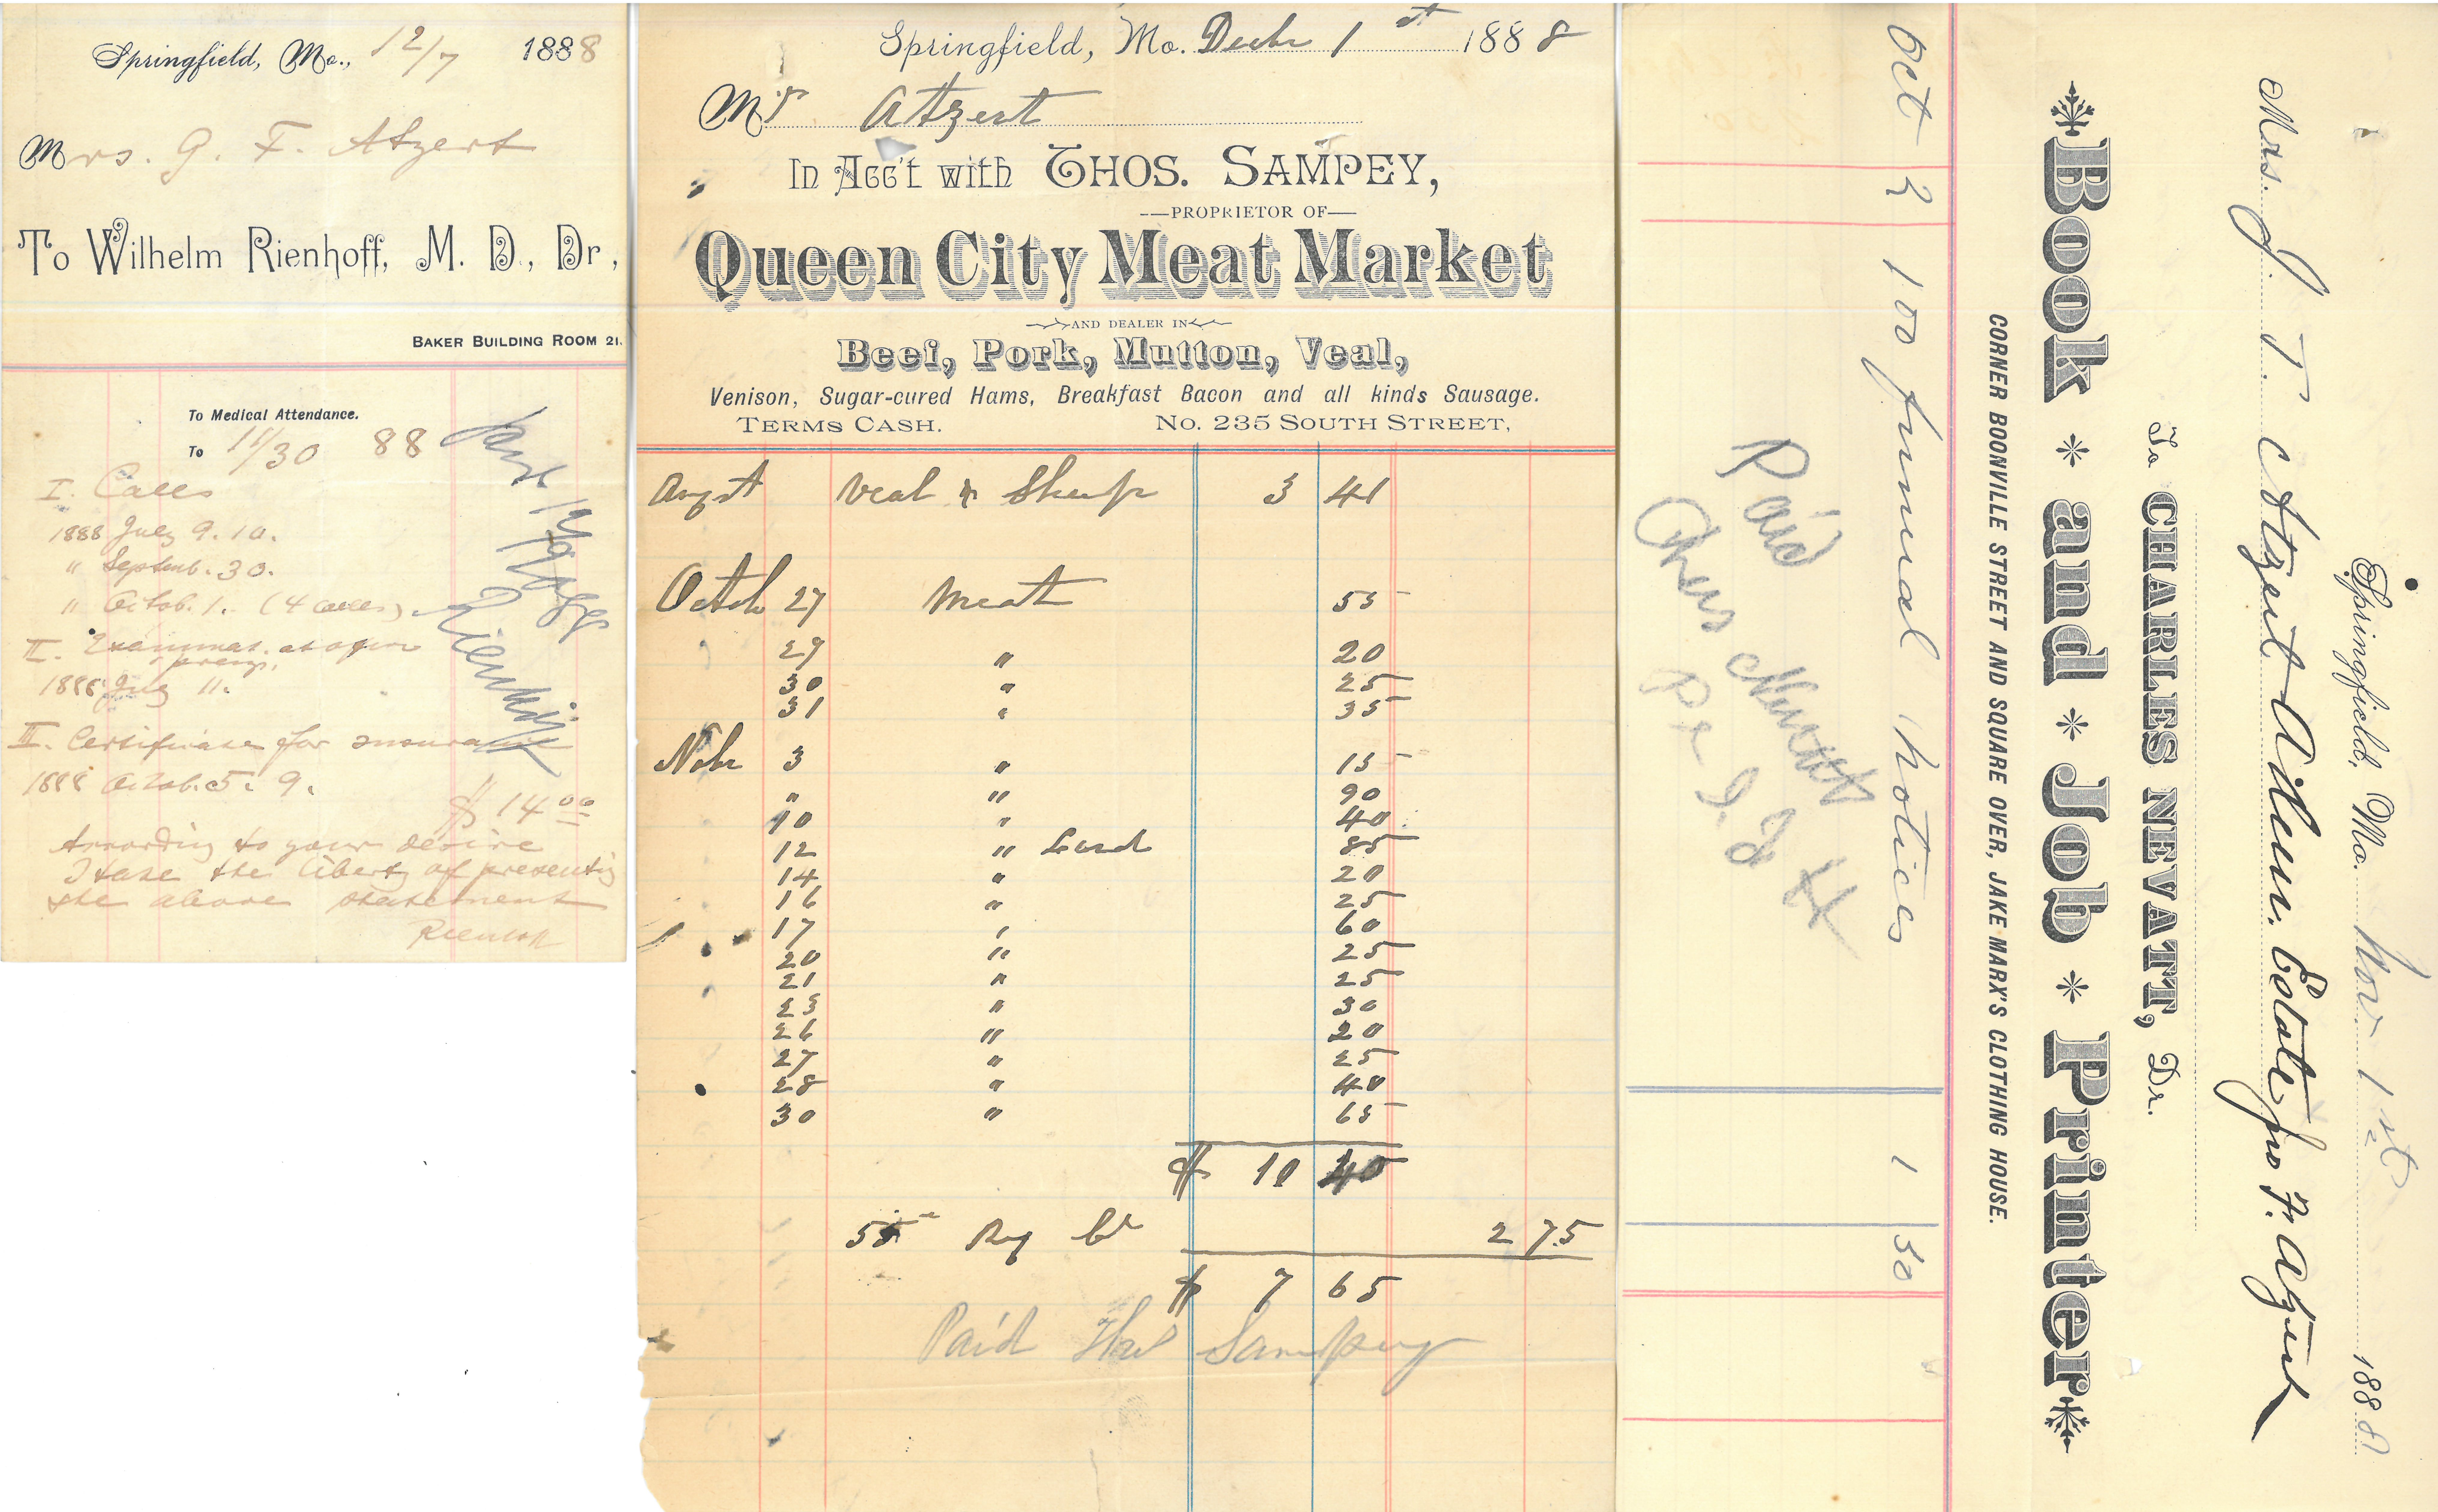 Springfield, Mo., 12/7 1888
Mrs. G. F. Atzert
To Wilhelm Rienhoff, M. D., Dr,
BAKER BUILDING ROOM 21.
To Medical Attendance.
To 11/30 88
I. Calls
1888 July 9. 10.
" Septemb. 30.
" Octob. 1. (4 calls)
II.
1888 11.
III. Certificate for insurance
1888 Octob. 5. 9.
$ 14 00
According to your desire
I take the liberty of presenting
the above statement
Rienhoff
Rienhoff
Springfield, Mo. Decbr 1st 1888
Mr Atzert
In Acc't with THOS. SAMPEY,
PROPRIETOR OF
Queen City Meat Market
AND DEALER IN
Beef, Pork, Mutton, Veal,
Venison, Sugar-cured Hams, Breakfast Bacon and all kinds Sausage.
TERMS CASH. No. 235 SOUTH STREET,
Augst Veal & Sheep 3 41
Octob 27 Meat 55
29 " 20
30 " 25
31 " 35
Nobr 3 " 15
" " 90
10 " 40
12 " Lard 85
14 " 20
16 " 25
17 " 60
20 " 25
21 " 25
23 " 30
26 " 20
27 " 25
28 " 40
30 " 65
$ 10 40
55 2 75
$ 7 65
Paid Thos Sampey
Springfield, Mo. Nov. 1st 1888
Mrs. J. T. Atzert Admr. Estate Jno F. Atzert
To CHARLES NEVATT, Dr.
Book and Job Printer
CORNER BOONVILLE STREET AND SQUARE OVER, JAKE MARX'S CLOTHING HOUSE.
Oct 2 100 funeral notices 1 50
Paid
Chas Nevatt